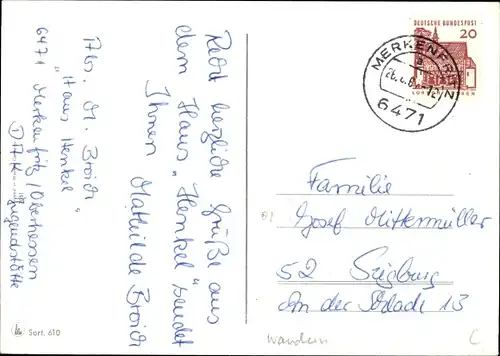 Recht herzliche Grüße aus
dem Haus „Henkel" sendet
Ihnen Mathilde Broich
Abs. M. Broich
„Haus Henkel"
6471 Merkenfritz/Oberhessen
Jugendstätte
DEUTSCHE BUNDESPOST
20
LORSCH
MERKENFRITZ
6471
Familie
Josef Mittermüller
52 Siegburg
An der 13
wandern
C
Sort. 610